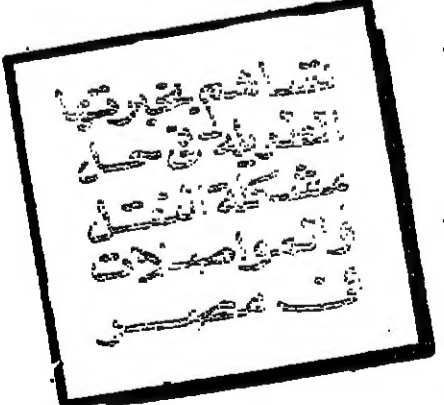 تساهم بخبرتها
الفنية في حل
مشكلة النقل
والمواصلات
فى مصر